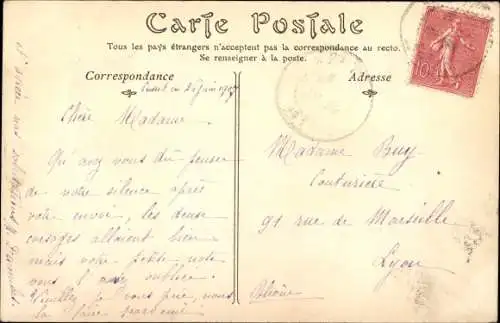 Carte Postale
Tous les pays étrangers n'acceptent pas la correspondance au recto.
Se renseigner à la poste.
Correspondance
Adresse
24 Juin
Chère Madame
Qu'avez vous dû penser
de notre silence après
votre envoi, les deux
corsages allaient bien
mais votre petite note
vous l'avez oubliée
je vous prie, nous
la faire
Madame Buy
Couturière
91 rue de Marseille
Lyon
Rhône
10